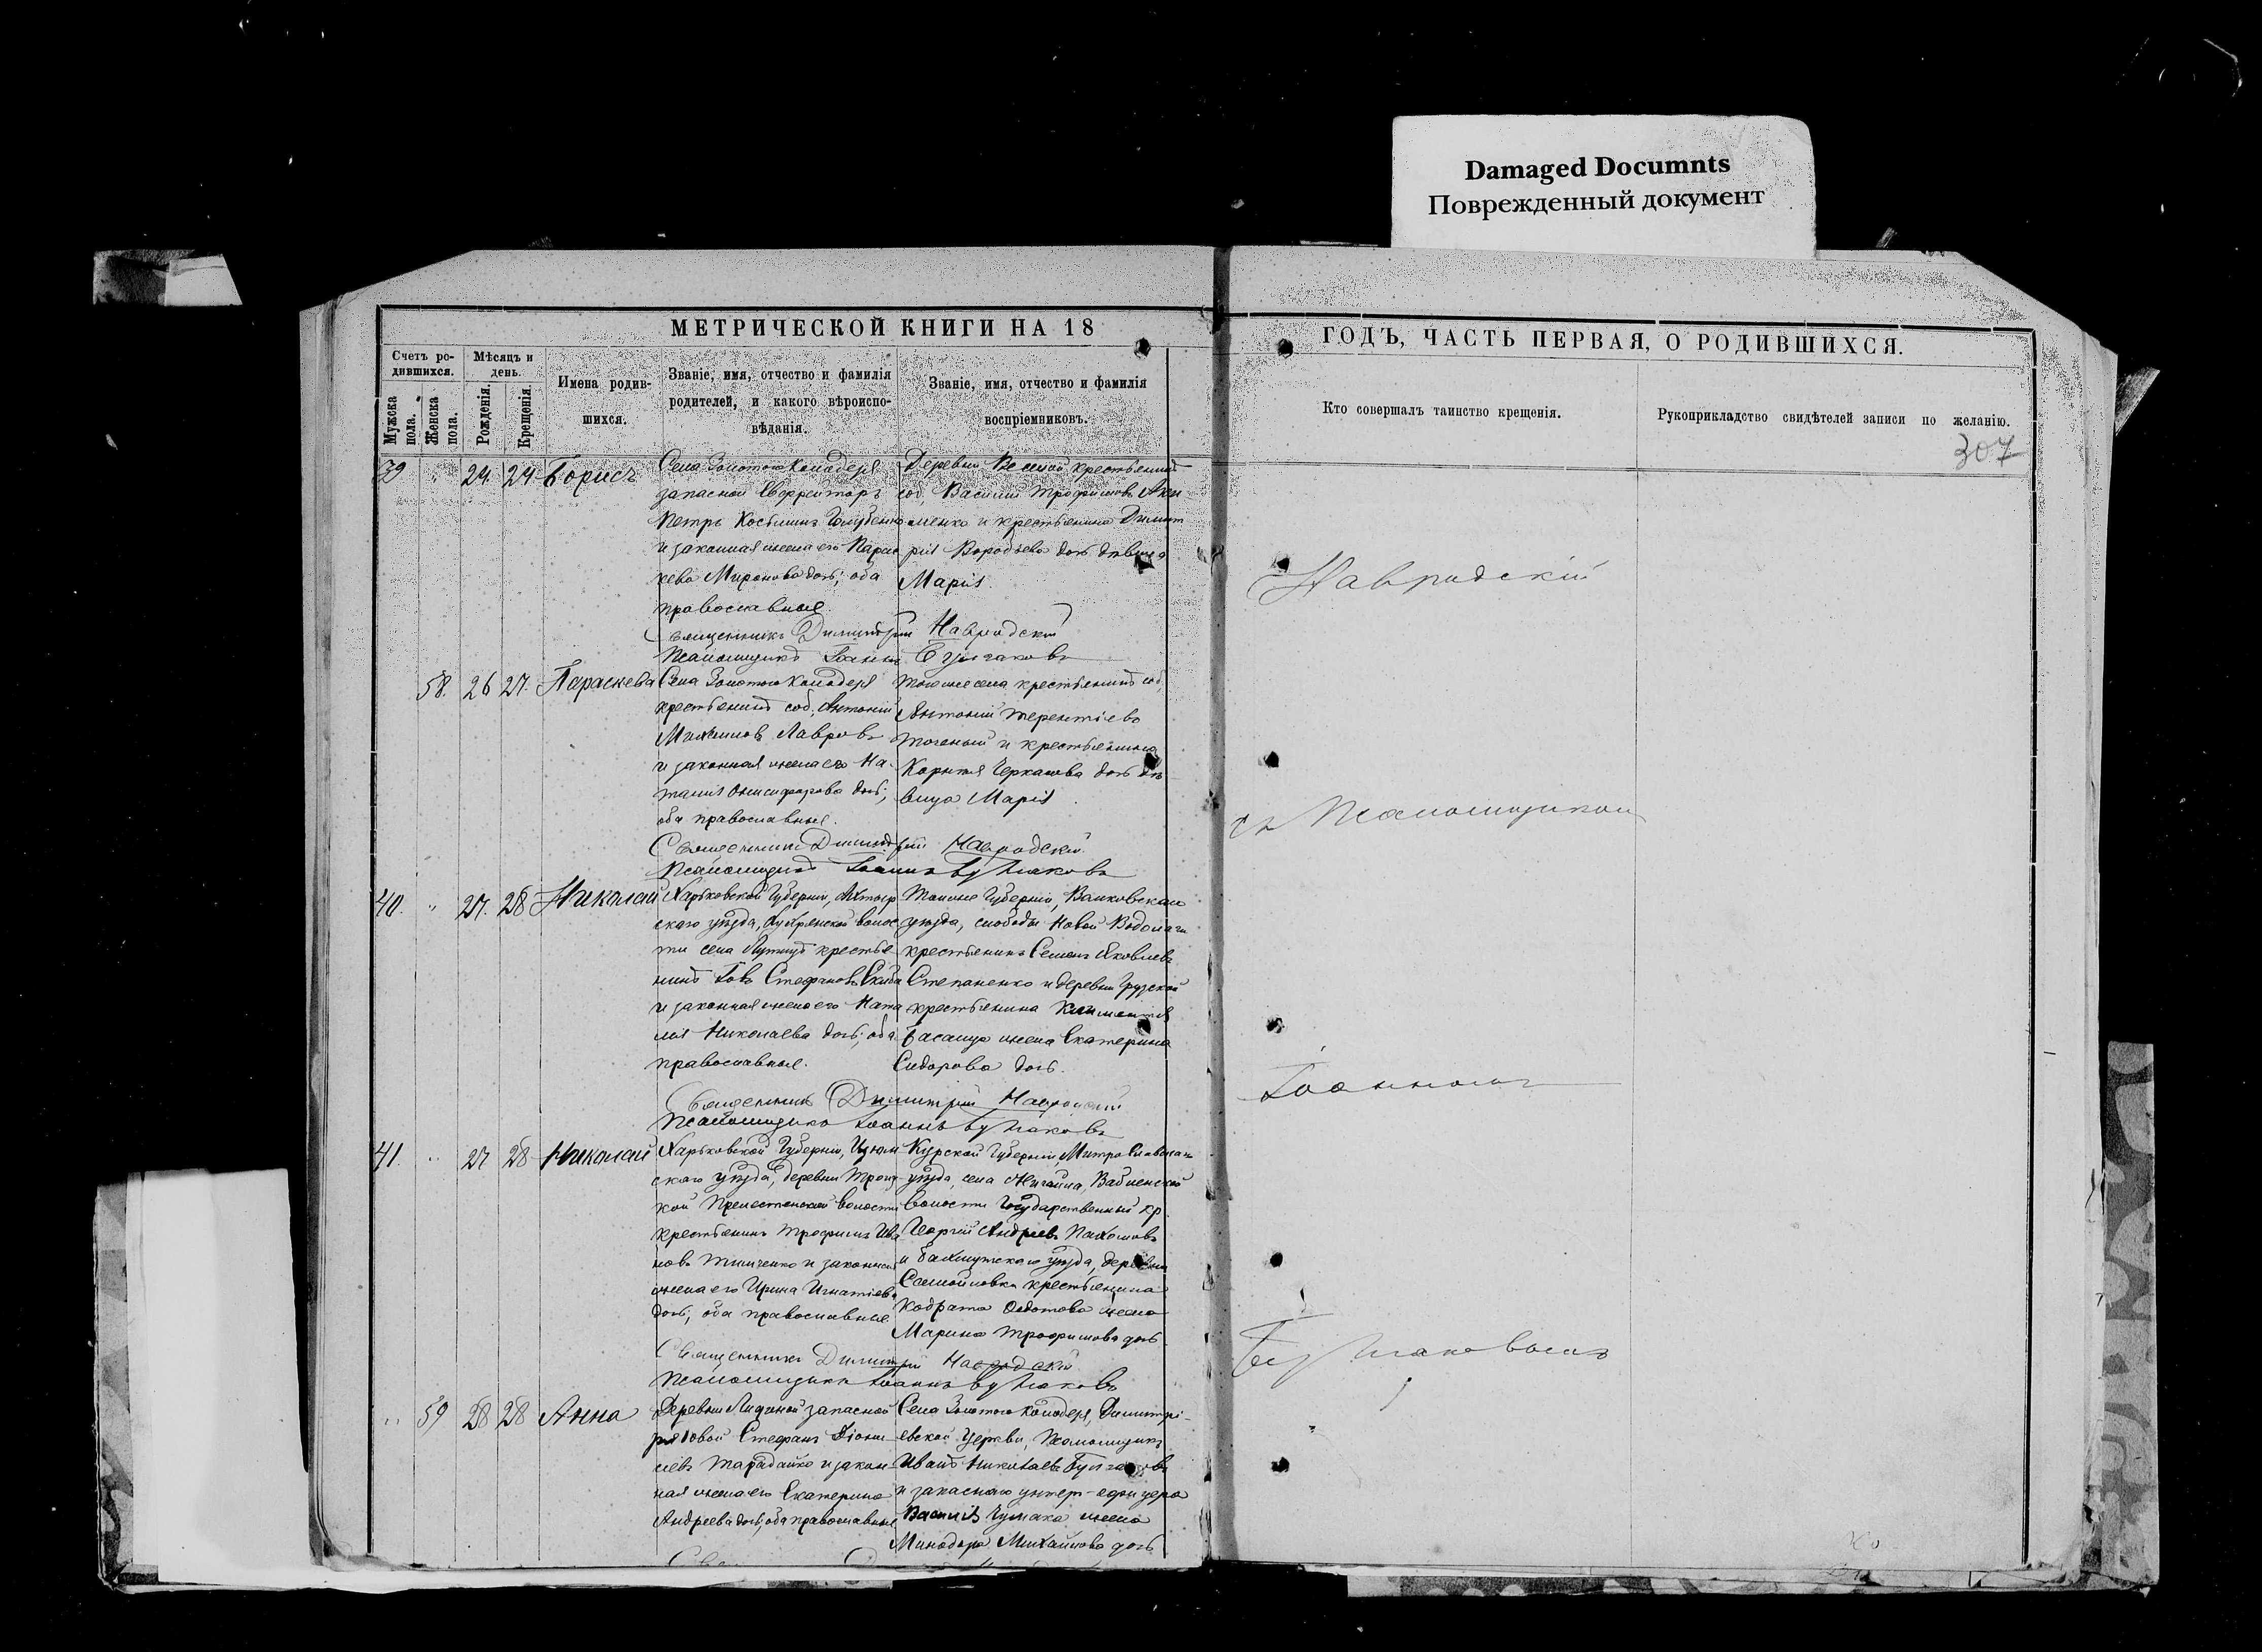 Damaged Documnts
Поврежденный документ
МЕТРИЧЕСКОЙ КНИГИ НА 18
ГОДЪ, ЧАСТЬ ПЕРВАЯ, О РОДИВШИХСЯ.
Счетъ ро-
дившихся.
Мужска
пола.
Женска
пола.
Мѣсяцъ и
день.
Рожденія.
Крещенія.
Имена родив-
шихся.
Званіе, имя, отчество и фамилія
родителей, и какого вѣроиспо-
вѣданія.
Званіе, имя, отчество и фамилія
воспріемниковъ.
Кто совершалъ таинство крещенія.
Рукоприкладство свидѣтелей записи по желанію.
307
39 " 24. 24 Борисъ
Села Золотого Колодезя
запасной Ефрейторъ
Петръ
и законная жена его Парас
кева Миронова дочь; оба
православные.
крестьянинъ
соб. Василій Трофимовъ Аки
менко и крестьянина Димит
рія Воробьева дочь дѣвица
Марія.
Священникъ Димитрій Навродскій
Псаломщикъ Іоаннъ Булгаковъ
58. 26 27. Параскева
Села Золотого Колодезя
крестьянинъ соб. Антоній
Михаиловъ Лавровъ
и законная жена его На-
талія Онисифорова дочь;
оба православные.
Того же села крестьянинъ соб.
Антоній Терентіевъ
и крестьянина
Корнилія Черкасова дочь дѣ
вица Марія.
Священникъ Димитрій Навродскій
Псаломщикъ Іоаннъ Булгаковъ
40. " 27. 28 Николай
Харьковской Губерніи, Ахтыр
скаго уѣзда, волос
ти села крестья
нинъ Іовъ Стефановъ Скиба
и законная жена его Ната
лія Николаева дочь; оба
православные.
Тойже Губерніи, Валковскаго
уѣзда, слободы Новой Водолаги
крестьянинъ Семенъ Яковлевъ
Степаненко и деревни Грузской
крестьянина Климентія
жена Екатерина
Сидорова дочь.
Священникъ Димитрій Навродскій
Псаломщикъ Іоаннъ Булгаковъ
41. " 27 28 Николай
Харьковской Губерніи, Изюм
скаго уѣзда, деревни Троиц
кой волости
крестьянинъ Трофимъ Ива
новъ и законная
жена его Ирина Игнатіева
дочь; оба православные
Курской Губерніи,
уѣзда, села
волости Государственный кр.
Георгій Андреевъ Пахомовъ
и Бахмутскаго уѣзда, деревни
Самойловки крестьянина
Кодрата Федотова жена
Марина Трофимова дочь
Священникъ Димитрій Навродскій
Псаломщикъ Іоаннъ Булгаковъ
" 59 28 28 Анна
Деревни запасной
рядовой Стефанъ Діони
сіевъ и закон
ная жена его Екатерина
Андреева дочь; оба православные
Села Золотого Колодезя, Димитрі-
евской церкви, Псаломщикъ
Иванъ Николаевъ Булгаковъ
и запаснаго унтер-офицера
Василія Чумака жена
Минодора Михайлова дочь
Навродскій
съ Псаломщикомъ
Іоанномъ
Булгаковымъ